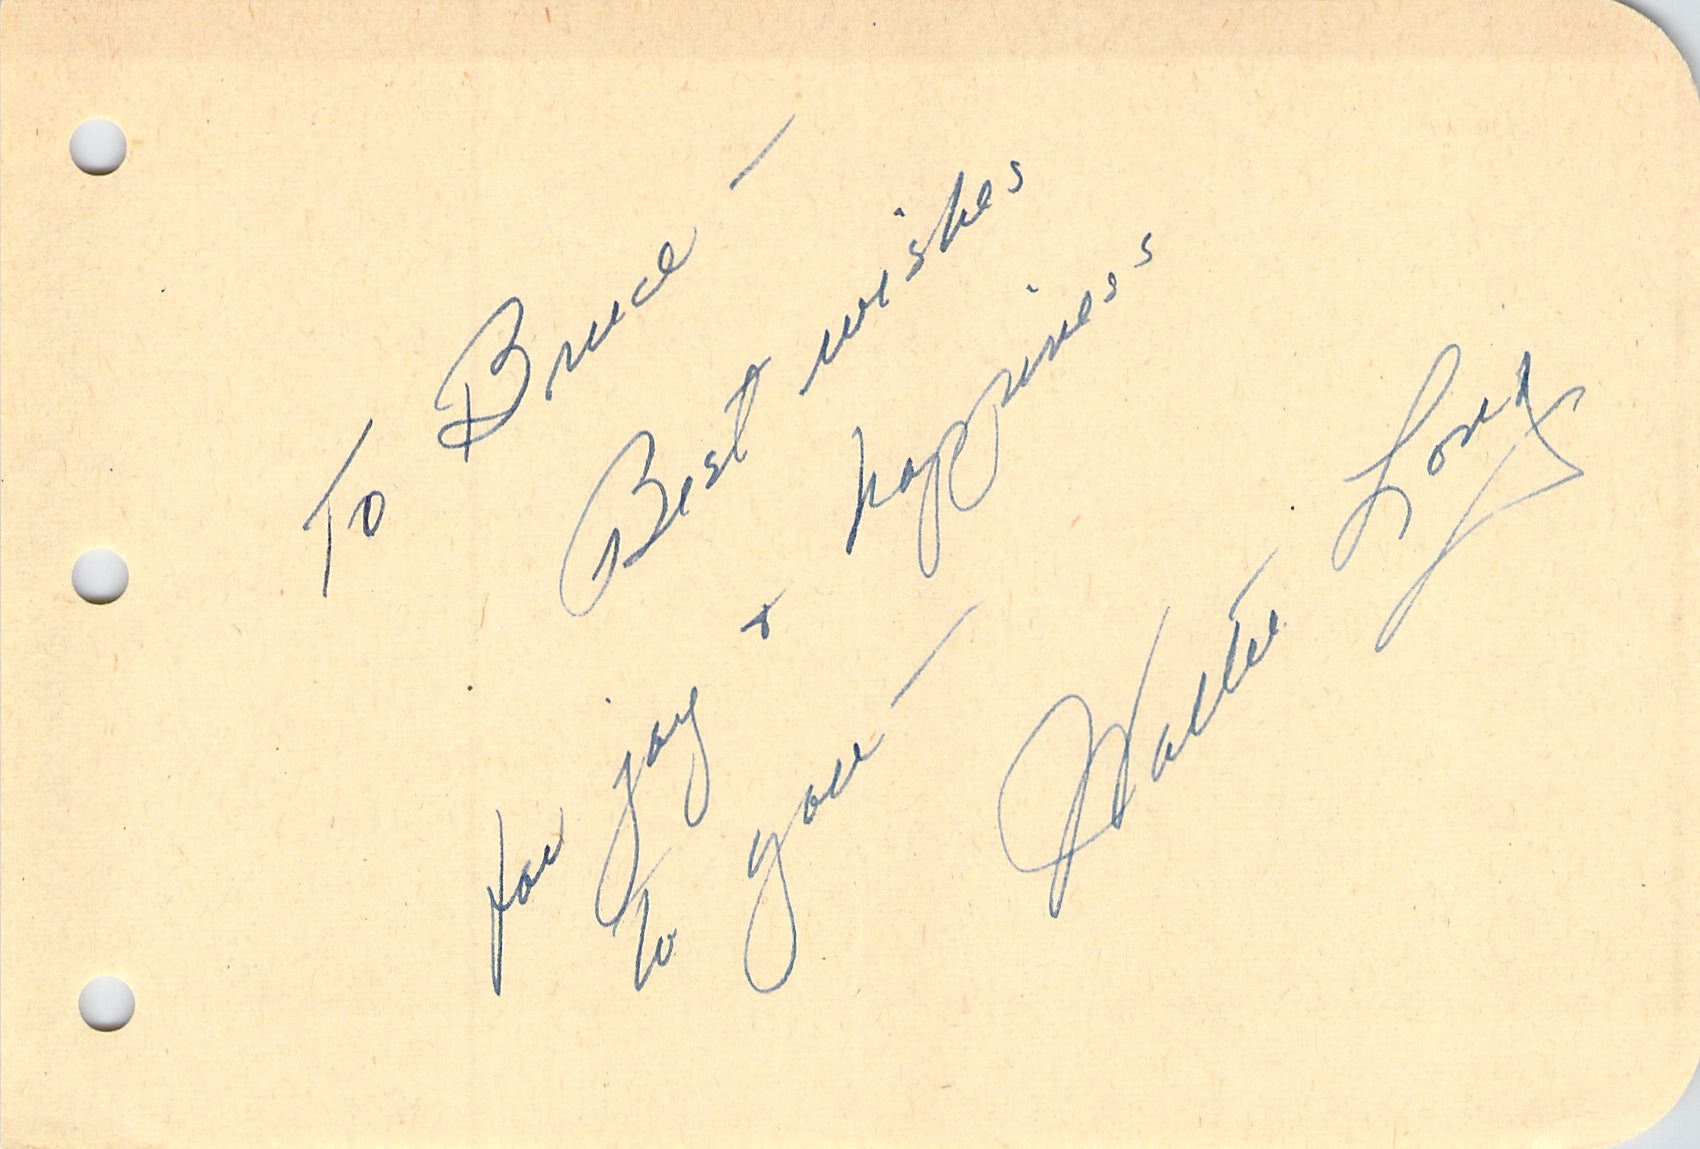 To Bruce —
Best wishes
for joy & happiness
to you —
Walter Long